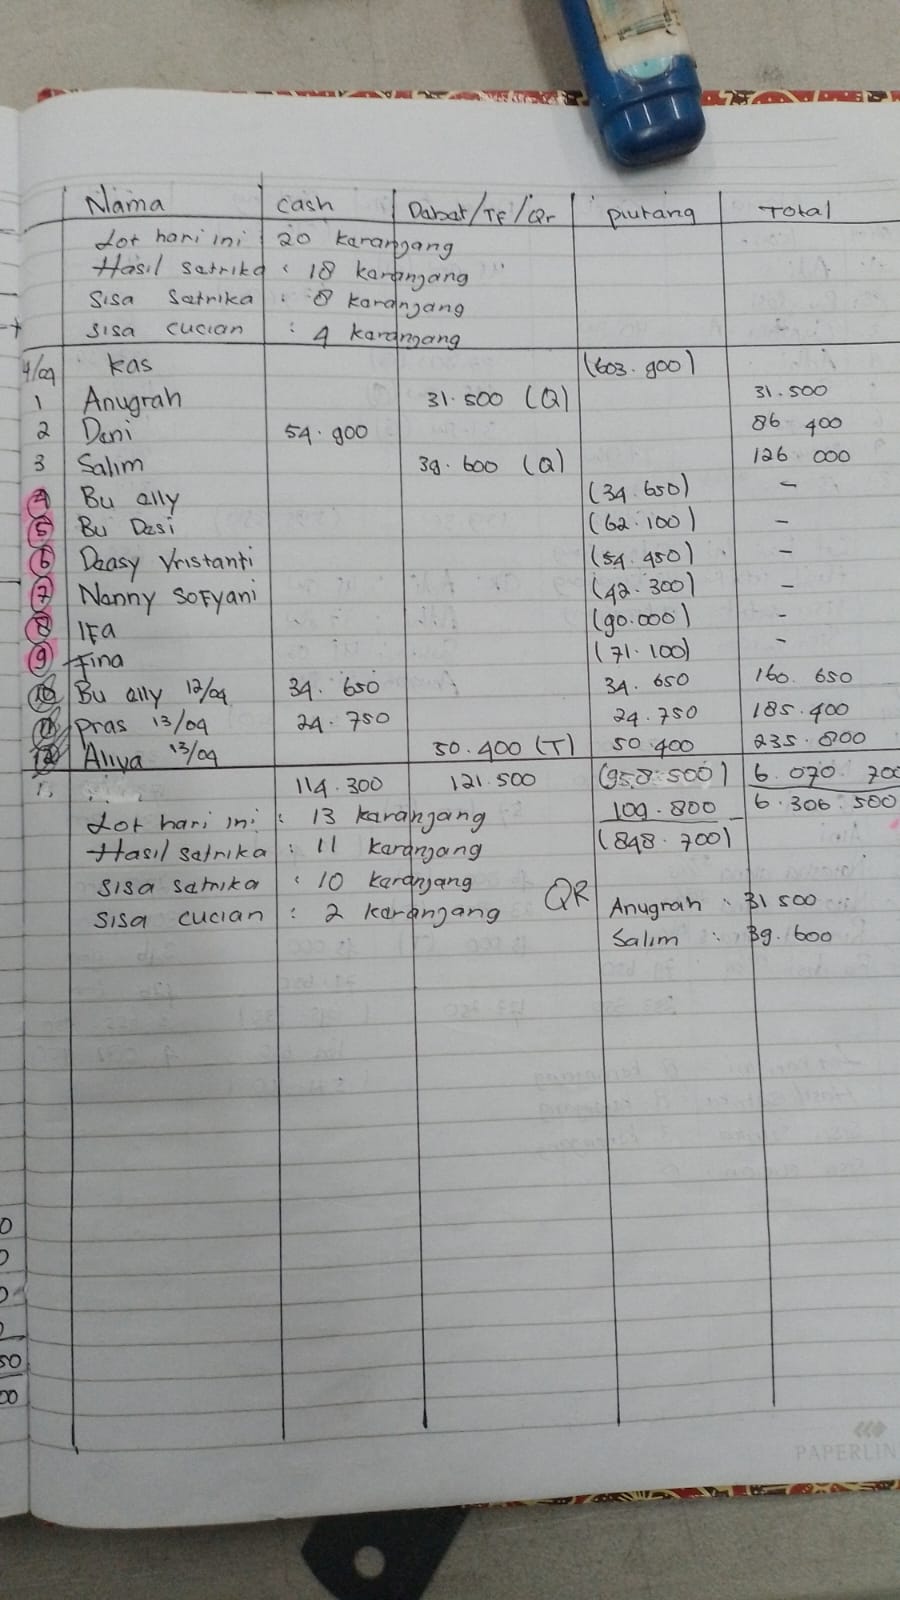 Nama cash Dabat/TF/Qr piutang Total
Lot hari ini 20 karanjang
Hasil satrika : 18 karanjang
Sisa Satrika : 8 karanjang
Sisa cucian : 4 karanjang
kas (603.900)
1 Anugrah 31.500 (Q) 31.500
2 Deni 54.900 86.400
3 Salim 39.600 (Q) 126.000
4 Bu elly (34.650) -
5 Bu Desi (62.100) -
6 Deasy Yristanti (54.450) -
7 Nenny Sofyani (42.300) -
8 IFa (90.000) -
9 Fina (71.100) -
10 Bu elly 12/09 34.650 34.650 160.650
11 pras 13/09 24.750 24.750 185.400
12 Aliya 13/09 50.400 (T) 50.400 235.800
114.300 121.500 (958.500) 6.070.700
Lot hari ini : 13 karanjang 109.800 - 6.306.500
Hasil satrika : 11 karanjang (848.700)
Sisa satrika : 10 karanjang
Sisa cucian : 2 karanjang
QR Anugrah : 31.500
Salim : 39.600
PAPERLIN
50
00